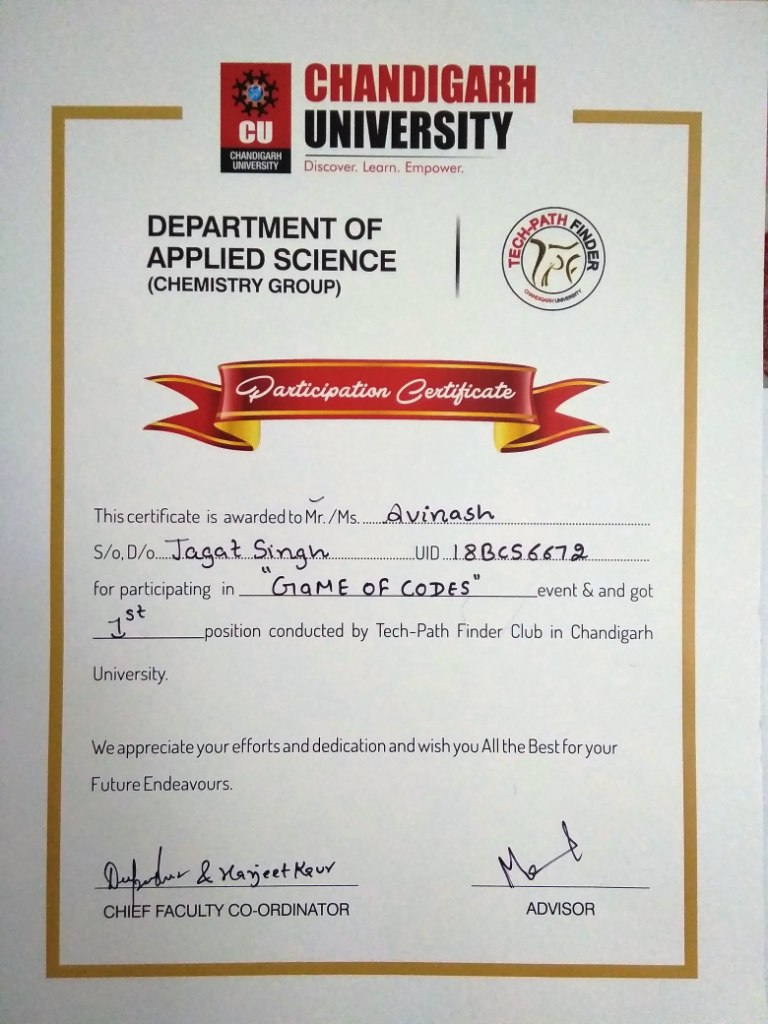 CU
CHANDIGARH
UNIVERSITY
CHANDIGARH
UNIVERSITY
Discover. Learn. Empower.
DEPARTMENT OF
APPLIED SCIENCE
(CHEMISTRY GROUP)
TECH-PATH FINDER
TPF
CHANDIGARH UNIVERSITY
Participation Certificate
This certificate is awarded to Mr. /Ms. Avinash
S/o, D/o Jagat Singh UID 18BCS6672
for participating in "GAME OF CODES" event & and got
1st position conducted by Tech-Path Finder Club in Chandigarh
University.
We appreciate your efforts and dedication and wish you All the Best for your
Future Endeavours.
& Harjeet Kaur
CHIEF FACULTY CO-ORDINATOR
ADVISOR